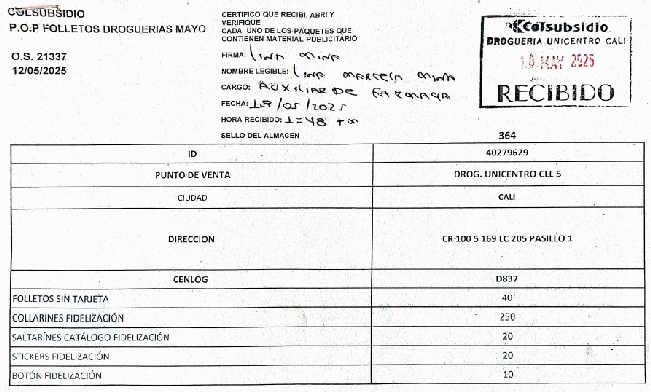 COLSUBSIDIO
P.O.P FOLLETOS DROGUERIAS MAYO
O.S. 21337
12/05/2025
CERTIFICO QUE RECIBI, ABRI Y
VERIFIQUE
CADA UNO DE LOS PAQUETES QUE
CONTIENEN MATERIAL PUBLICITARIO
FIRMA: Lina
NOMBRE LEGIBLE: Lina Marcela
CARGO: AUXILIAR DE FARMACIA
FECHA: /05/2025
HORA RECIBIDO: 1=48 pm
SELLO DEL ALMACEN
Colsubsidio
DROGUERIA UNICENTRO CALI
MAY 2025
RECIBIDO
364
ID 40279629
PUNTO DE VENTA DROG. UNICENTRO CLL 5
CIUDAD CALI
DIRECCION CR 100 5 169 LC 205 PASILLO 1
CENLOG D837
FOLLETOS SIN TARJETA 40
COLLARINES FIDELIZACIÓN 250
SALTARINES CATÁLOGO FIDELIZACIÓN 20
STICKERS FIDELIZACIÓN 20
BOTÓN FIDELIZACIÓN 10